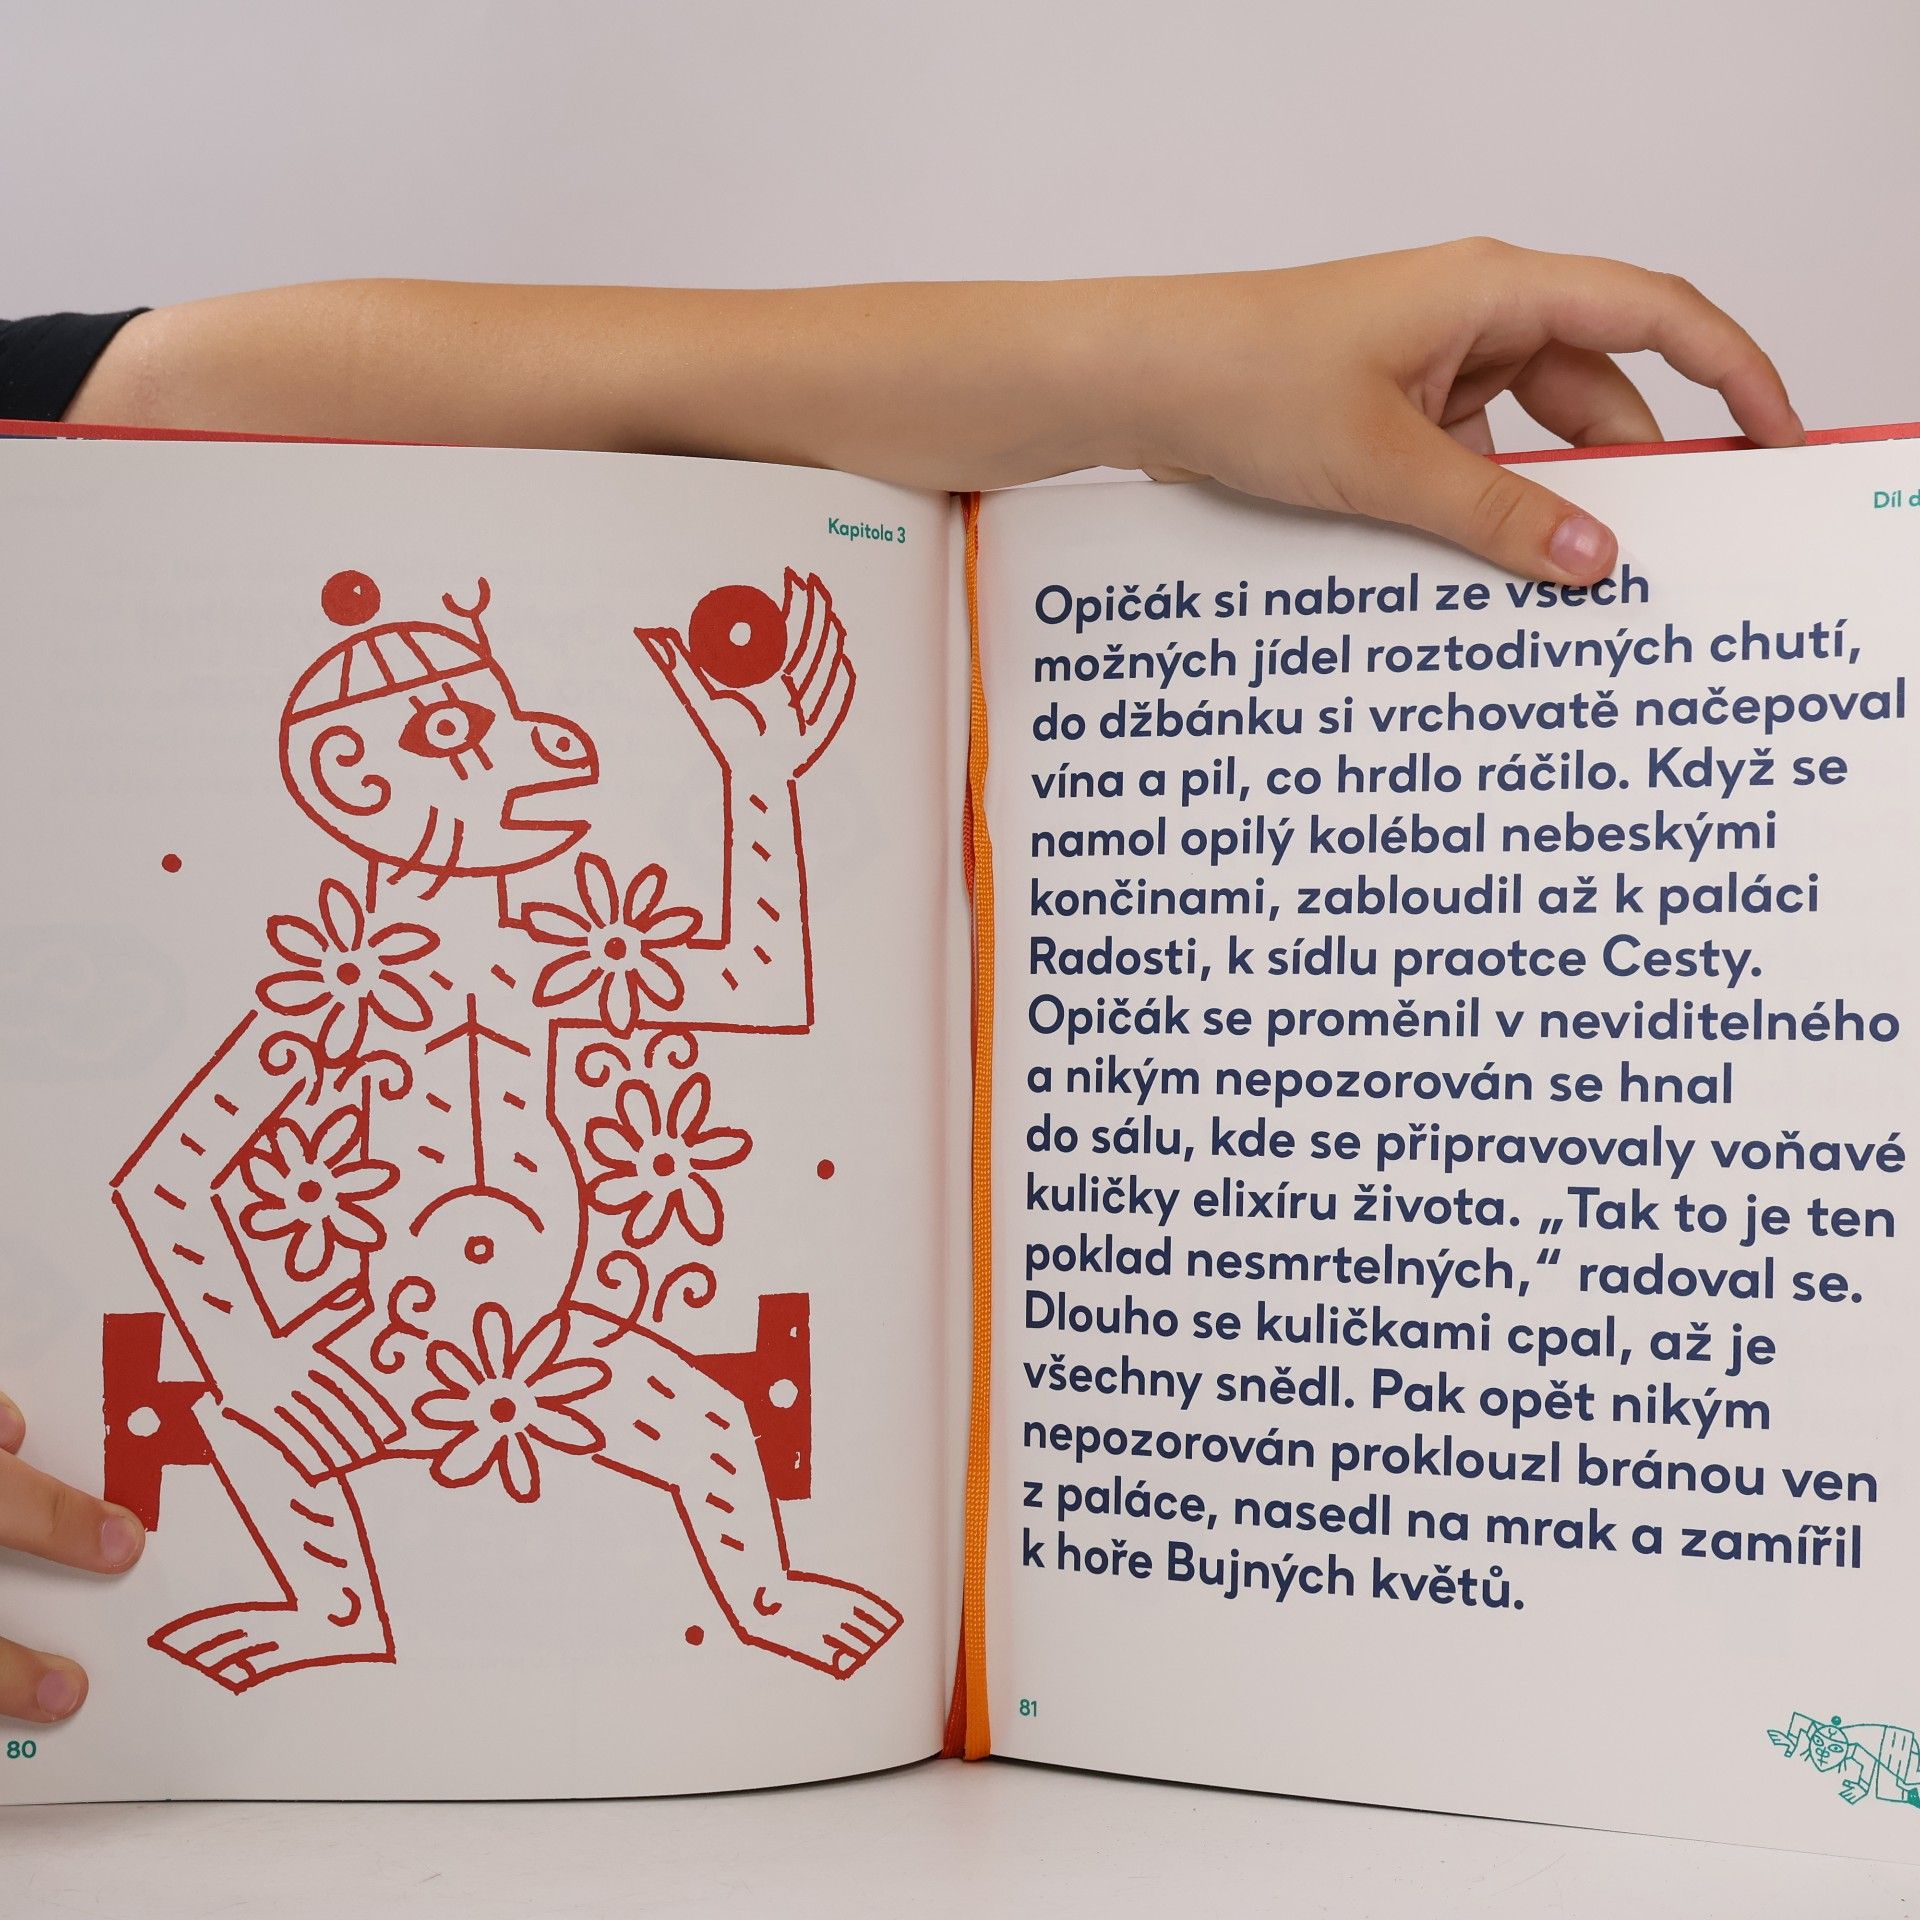 Kapitola 3
80
Díl
Opičák si nabral ze všech
možných jídel roztodivných chutí,
do džbánku si vrchovatě načepoval
vína a pil, co hrdlo ráčilo. Když se
namol opilý kolébal nebeskými
končinami, zabloudil až k paláci
Radosti, k sídlu praotce Cesty.
Opičák se proměnil v neviditelného
a nikým nepozorován se hnal
do sálu, kde se připravovaly voňavé
kuličky elixíru života. „Tak to je ten
poklad nesmrtelných,“ radoval se.
Dlouho se kuličkami cpal, až je
všechny snědl. Pak opět nikým
nepozorován proklouzl bránou ven
z paláce, nasedl na mrak a zamířil
k hoře Bujných květů.
81